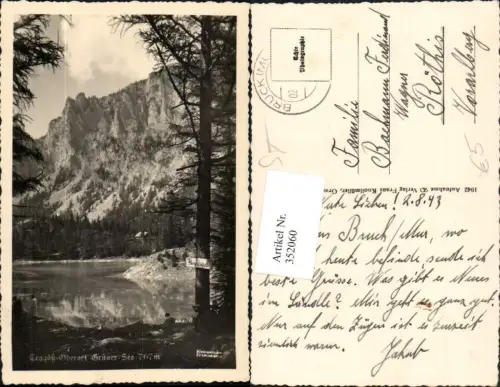 Tragöß-Oberort Grüner-See 757m
BRUCK
Echte
Photographie
Familie
Bachmann Ferdinand
Röthis
Vorarlberg
65
ST
1942 Aufnahme u. Verlag Franz Knollmüller, Graz
Artikel Nr.
352060
Liebe
n! 2.8.43
Bruck/Mur, wo
heute befinde, sende ich
beste Grüsse. Was gibt es Neues
im Ländle? Mir geht es ganz gut.
Nur auf den Zügen ist es zurzeit
ziemlich warm. Jakob